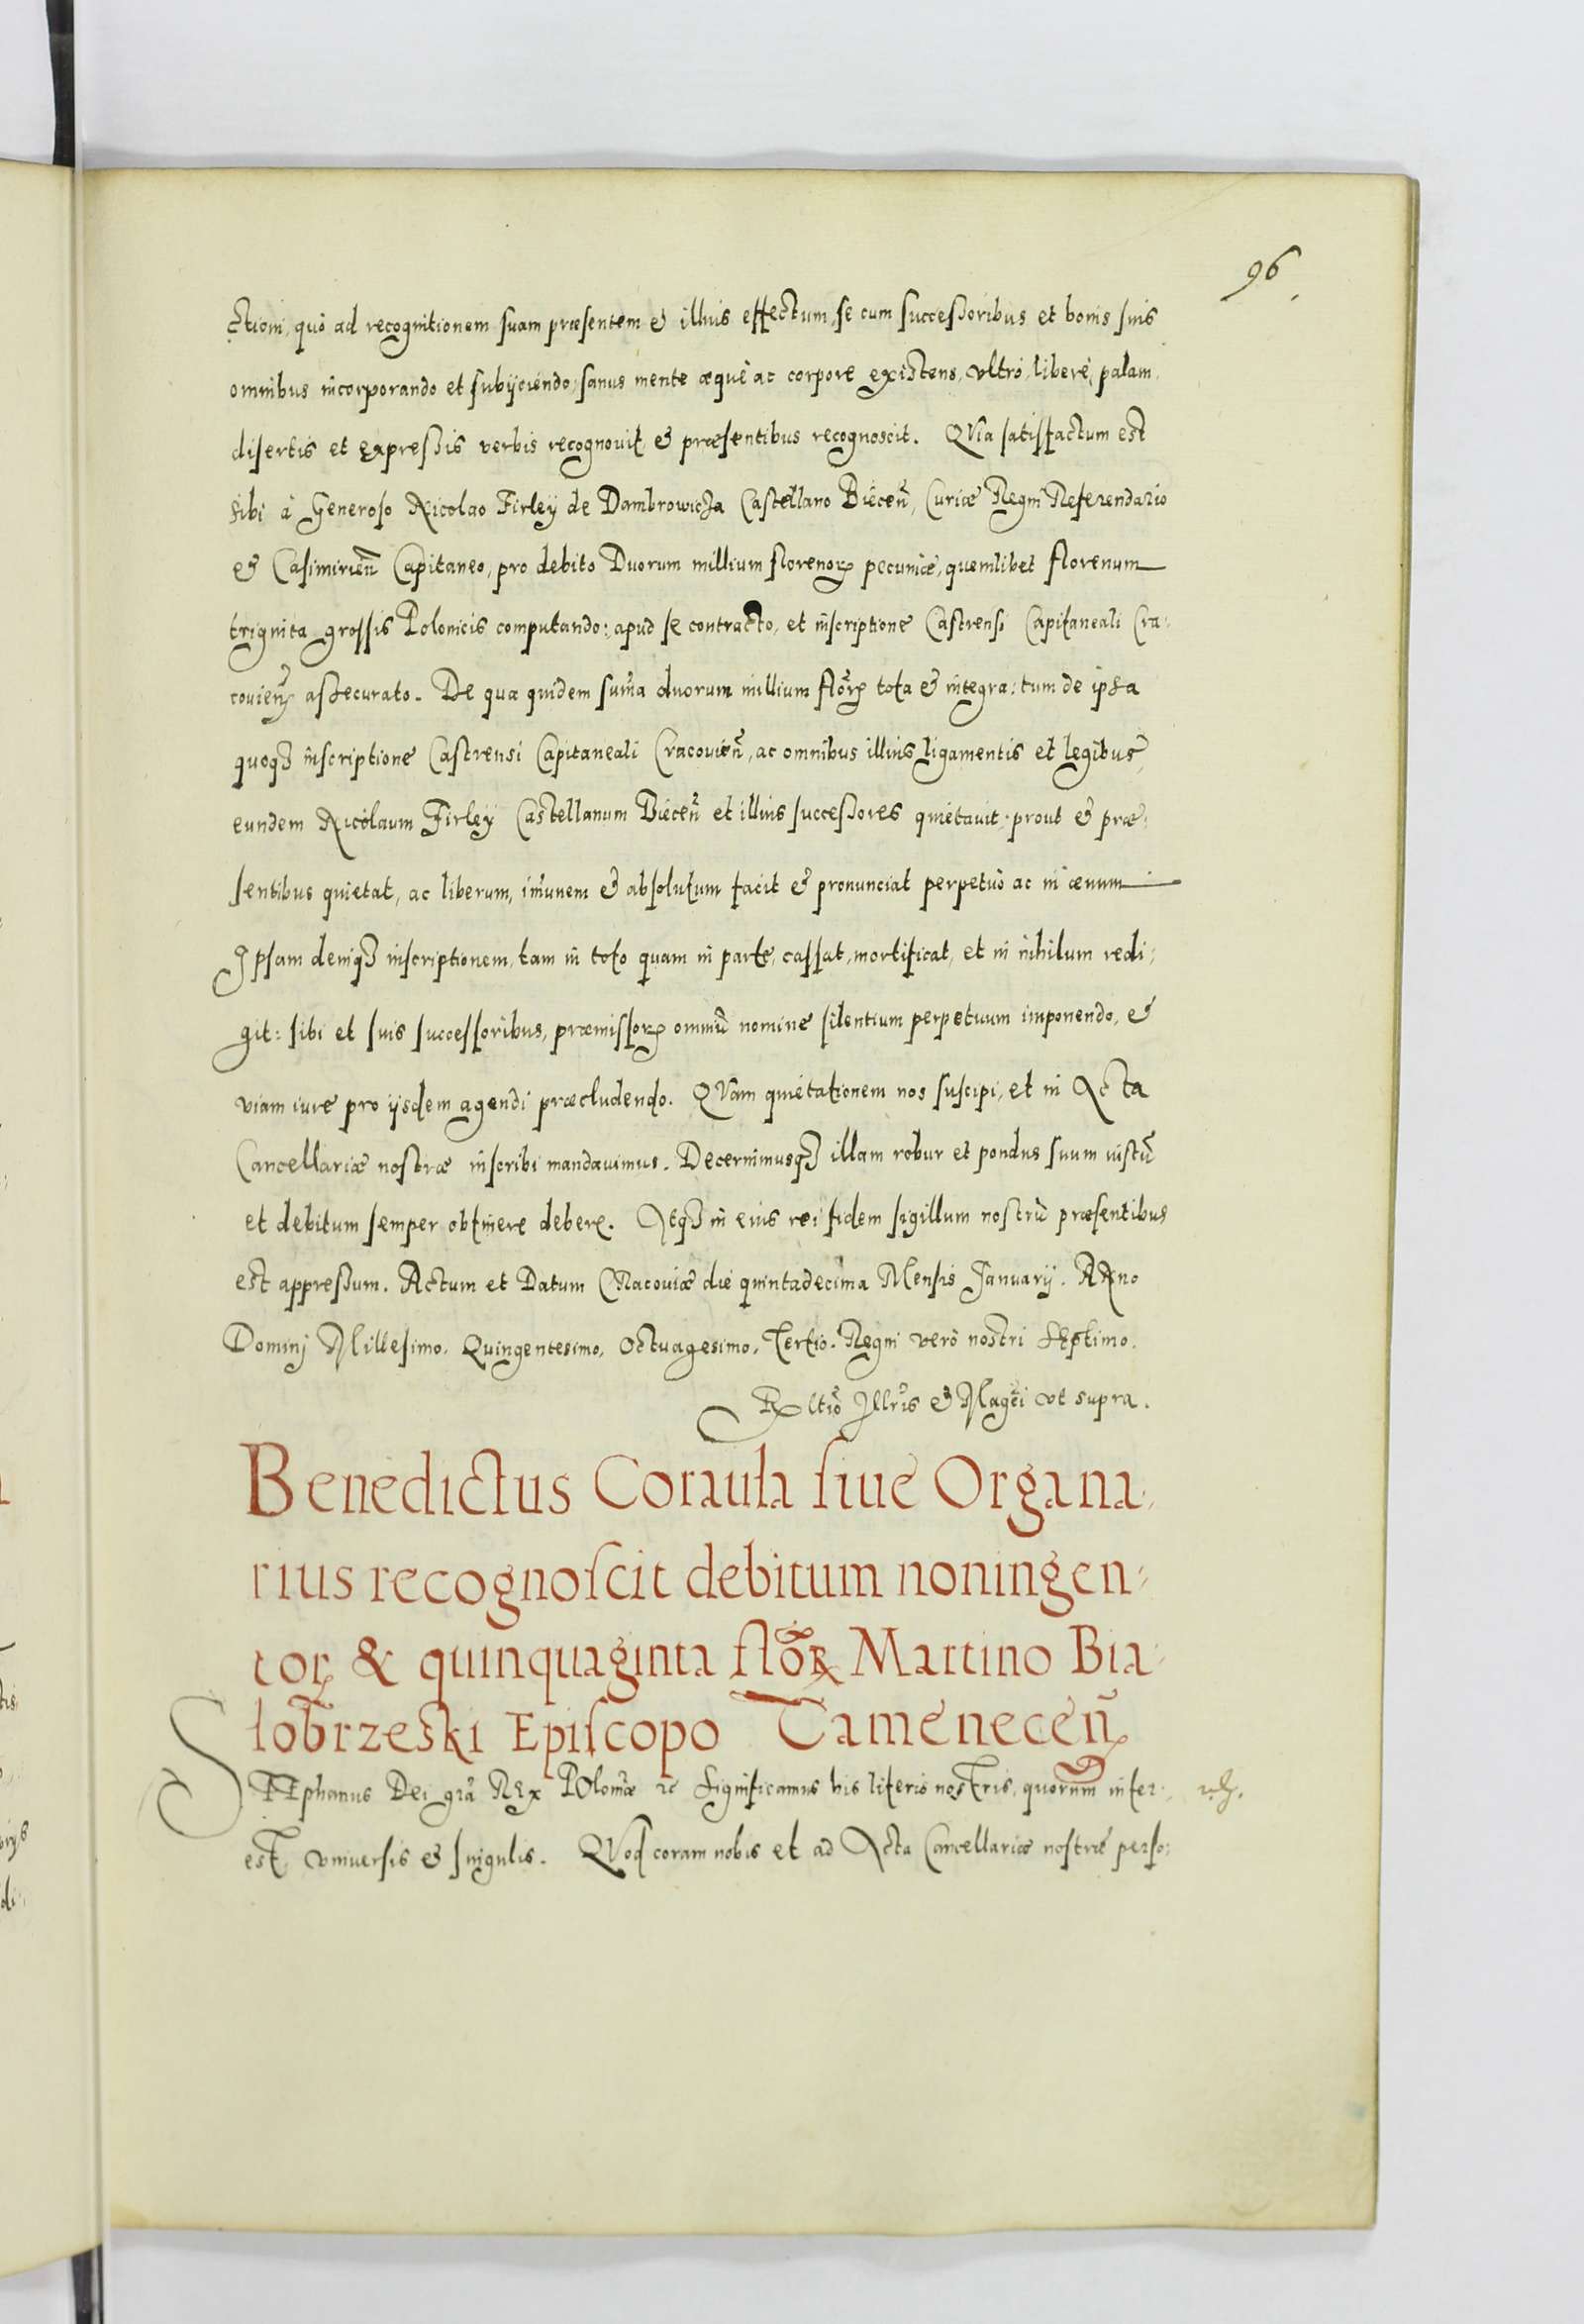 96
ctioni, quò ad recognitionem suam præsentem & illius effectum, se cum successoribus et bonis suis
omnibus incorporando et subijciendo, sanus mente æquè ac corpore existens, vltrò, liberè, palam,
disertis et expressis verbis recognouit, & præsentibus recognoscit. QVia satisfactum est
sibi à Generoso Nicolao Firley de Dambrowicza Castellano Biecen̄, Curiæ Regni Referendario
& Casimirien̄ Capitaneo, pro debito Duorum millium florenoꝝ pecuniæ, quemlibet florenum
trignita grossis Polonicis computando: apud se contracto, et inscriptione Castrensi Capitaneali Cra:
couien̄ assecurato. De qua quidem sum̄a duorum millium flor̄ꝝ tota & integra: tum de ipsa
quoqꝫ inscriptione Castrensi Capitaneali Cracouien̄, ac omnibus illius ligamentis et legibus,
eundem Nicolaum Firley Castellanum Biecen̄ et illius successores quietauit, prout & præ:
sentibus quietat, ac liberum, im̄unem & absolutum facit & pronunciat perpetuò ac in æuum
Ipsam deniqꝫ inscriptionem, tam in toto quam in parte, cassat, mortificat, et in nihilum redi:
git: sibi et suis successoribus, præmissoꝝ omniū nomine silentium perpetuum imponendo, &
viam iure pro ijsdem agendi præcludendo. QVam quietationem nos suscipi, et in Acta
Cancellariæ nostræ inscribi mandauimus. Decernimusqꝫ illam robur et pondus suum iustū
et debitum semper obtinere debere. Atqꝫ in eius rei fidem sigillum nostrū præsentibus
est appressum. Actum et Datum CRacouiæ die quintadecima Mensis Januarij. ANno
Dominj Millesimo, Quingentesimo, Octuagesimo, Tertio. Regni verò nostri SEptimo.
Rltiō Illr̄is & Magcī vt supra.
Benedictus Coraula siue Organa:
rius recognoscit debitum noningen:
toꝝ & quinquaginta flōꝝ Martino Bia:
łobrzeski Episcopo Camenecen̄
STEphanus Dei grā REx POloniæ ꝛc Significamus his literis nostris, quorum inter:
est, vniuersis & singulis. QVod coram nobis et ad Acta Cancellariæ nostræ perso: